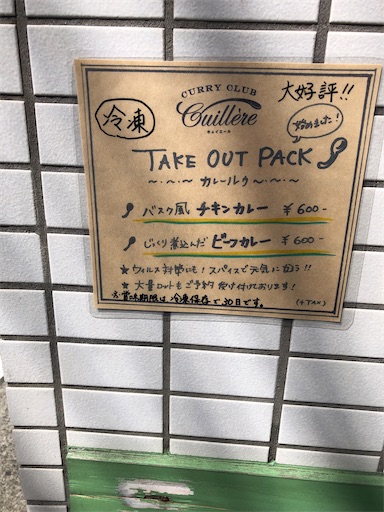 CURRY CLUB
Cuillère
キュイエール
冷凍
大好評!!
始めました!
TAKE OUT PACK
〜・〜・〜 カレールウ 〜・〜・〜
バスク風 チキンカレー ¥600-
じっくり煮込んだ ビーフカレー ¥600-
★ ウィルス対策にも! スパイスで元気に
★ 大量ロットもご予約 受け付けております!
※ 賞味期限は 冷凍保存で30日です。 (+TAX)